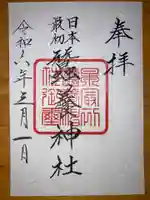 奉拝
日本最初
蠶養神社
令和六年月一日